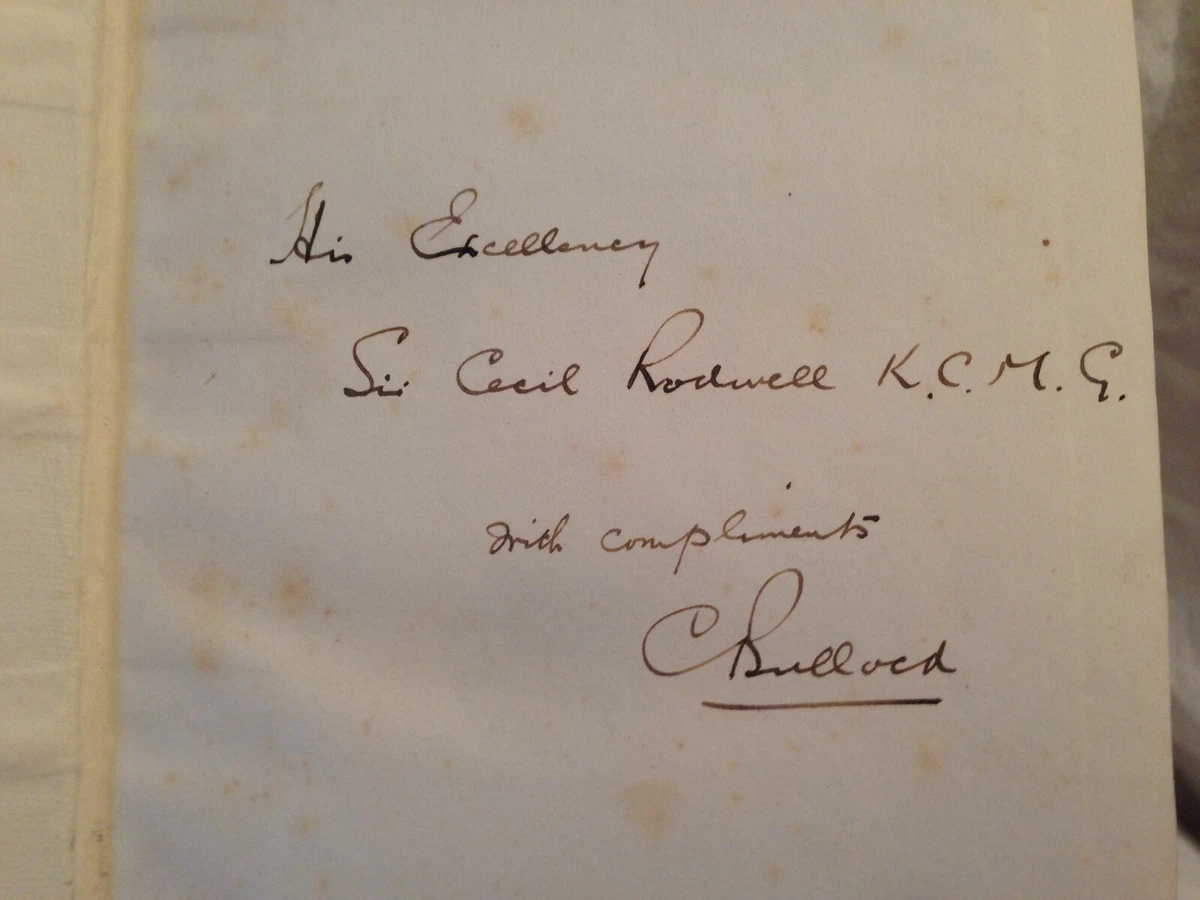 His Excellency
Sir Cecil Rodwell K.C.M.G.
with compliments
C Bullock